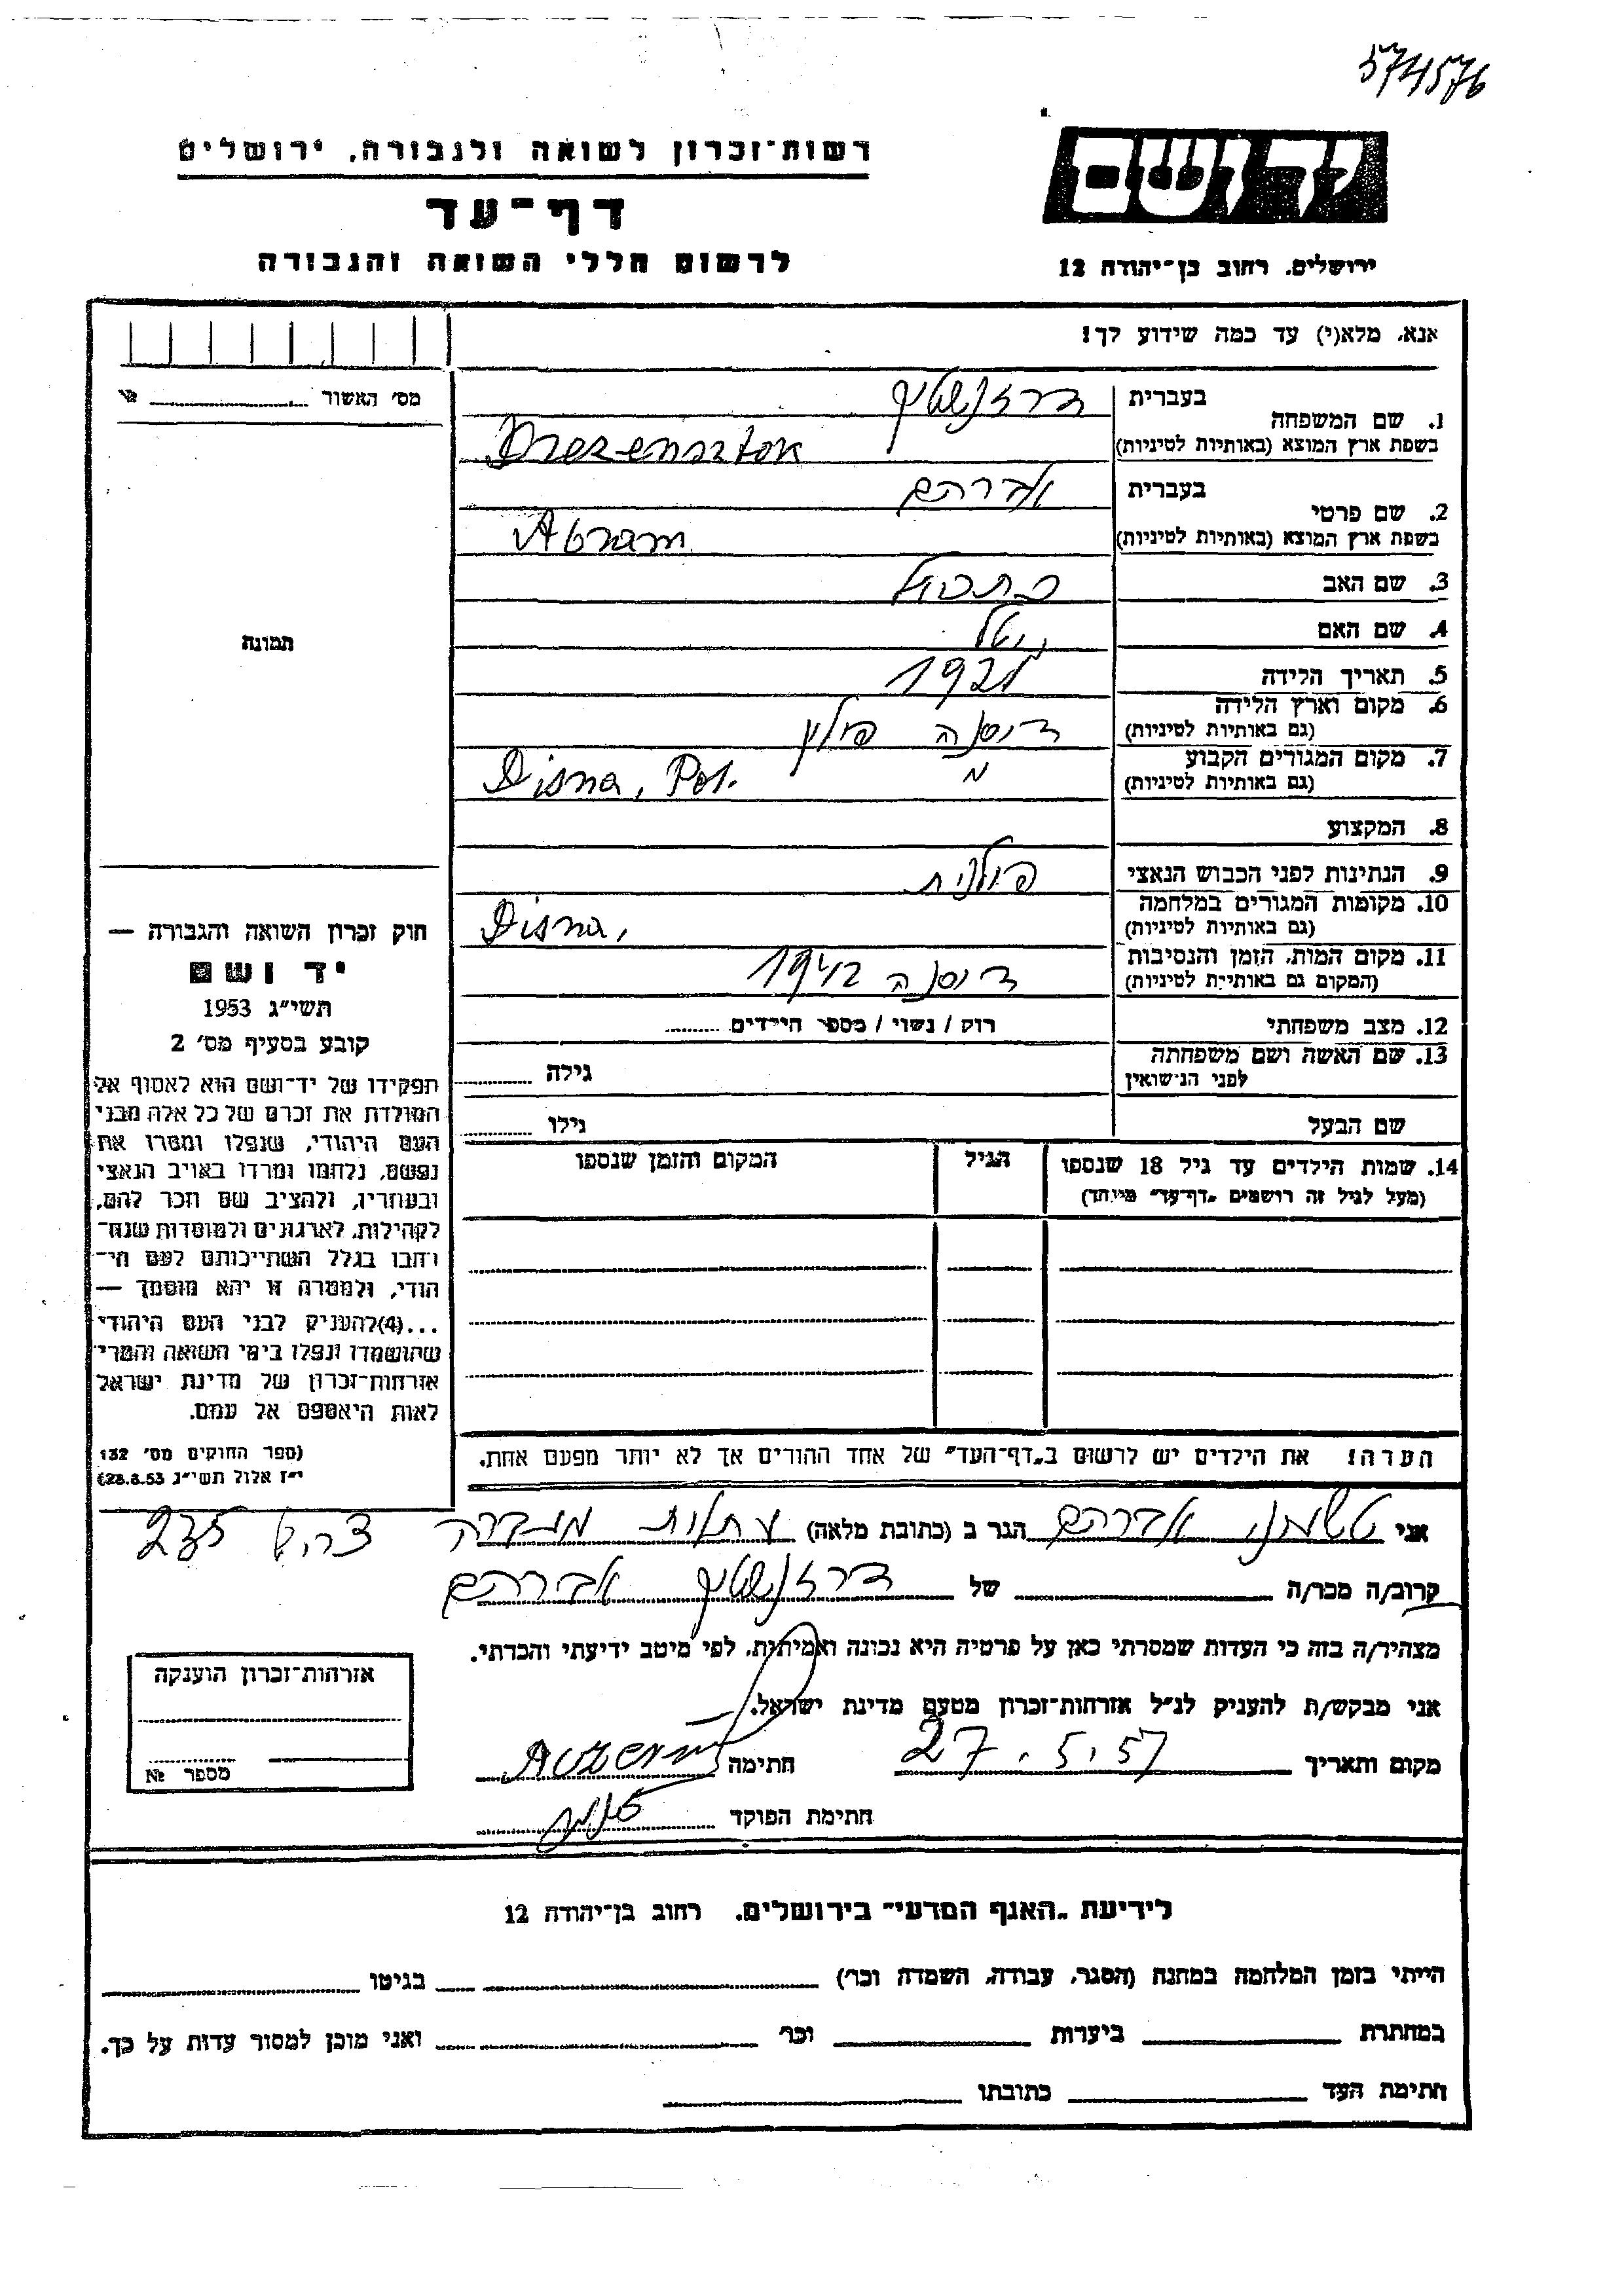 574576
רשות־זכרון לשואה ולגבורה, ירושלים
יד ושם
דף־עד
לרשום חללי השואה והגבורה
ירושלים, רחוב בן־יהודה 12
אנא, מלא(י) עד כמה שידוע לך!
מס׳ האשור №
1. שם המשפחה
בעברית
בשפת ארץ המוצא (באותיות לטיניות)
Drezensztok
2. שם פרטי
בעברית אברהם
בשפת ארץ המוצא (באותיות לטיניות) Abram
3. שם האב
4. שם האם
5. תאריך הלידה 1921
6. מקום וארץ הלידה דיסנה פולין
(גם באותיות לטיניות)
7. מקום המגורים הקבוע
(גם באותיות לטיניות) Disna, Pol.
8. המקצוע
9. הנתינות לפני הכבוש הנאצי פולנית
10. מקומות המגורים במלחמה
(גם באותיות לטיניות) Disna,
11. מקום המות, הזמן והנסיבות דיסנה 1942
(המקום גם באותיות לטיניות)
12. מצב משפחתי רוק / נשוי / מספר הילדים
13. שם האשה ושם משפחתה גילה
לפני הנישואין
שם הבעל גילו
14. שמות הילדים עד גיל 18 שנספו הגיל המקום והזמן שנספו
(מעל לגיל זה רושמים „דף־עד״ מיוחד)
הערה! את הילדים יש לרשום ב„דף־העד״ של אחד ההורים אך לא יותר מפעם אחת.
תמונה
חוק זכרון השואה והגבורה —
יד ושם
תשי״ג 1953
קובע בסעיף מס׳ 2
תפקידו של יד־ושם הוא לאסוף אל
המולדת את זכרם של כל אלה מבני
העם היהודי, שנפלו ומסרו את
נפשם, נלחמו ומרדו באויב הנאצי
ובעוזריו, ולהציב שם וזכר להם,
לקהילות, לארגונים ולמוסדות שנח־
רבו בגלל השתייכותם לעם הי־
הודי, ולמטרה זו יהא מוסמך —
...(4) להעניק לבני העם היהודי
שהושמדו ונפלו בימי השואה והמרי
אזרחות־זכרון של מדינת ישראל
לאות היאספם אל עמם.
(ספר החוקים מס׳ 132
י״ז אלול תשי״ג 28.8.53)
אני אברהם הגר ב (כתובת מלאה) עתלית 235
קרוב/ה מכר/ה של אברהם
מצהיר/ה בזה כי העדות שמסרתי כאן על פרטיה היא נכונה ואמיתית, לפי מיטב ידיעתי והכרתי.
אני מבקש/ת להעניק לנ״ל אזרחות־זכרון מטעם מדינת ישראל.
מקום ותאריך 27.5.57 חתימה
חתימת הפוקד
אזרחות־זכרון הוענקה
מספר №
לידיעת „האגף המדעי״ בירושלים, רחוב בן־יהודה 12
הייתי בזמן המלחמה במחנה (הסגר, עבודה, השמדה וכו׳) בגיטו
במחתרת ביערות וכו׳ ואני מוכן למסור עדות על כך.
חתימת העד כתובתו